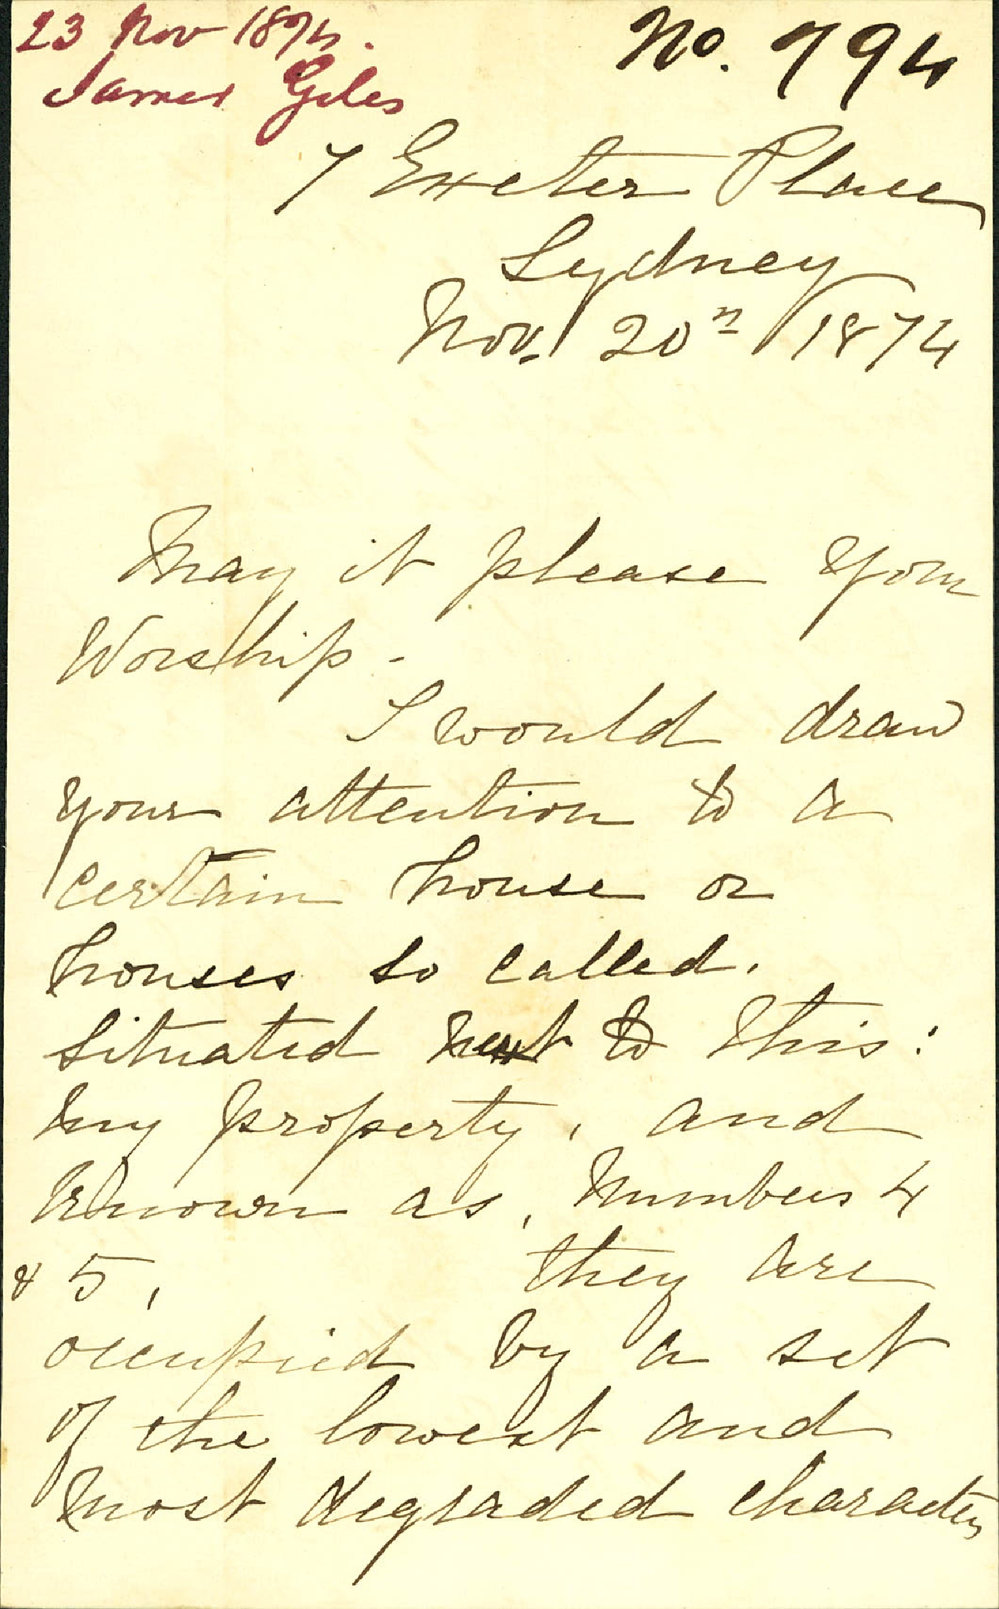 23 Nov 1874.
James Giles
No. 794
7 Exeter Place
Sydney
Nov. 20n 1874
May it please Your
Worship -
I would draw
your attention to a
certain house or
houses so called.
situated next to this:
my property, and
known as, Numbers 4
& 5, they are
occupied by a set
of the lowest and
most degraded characters